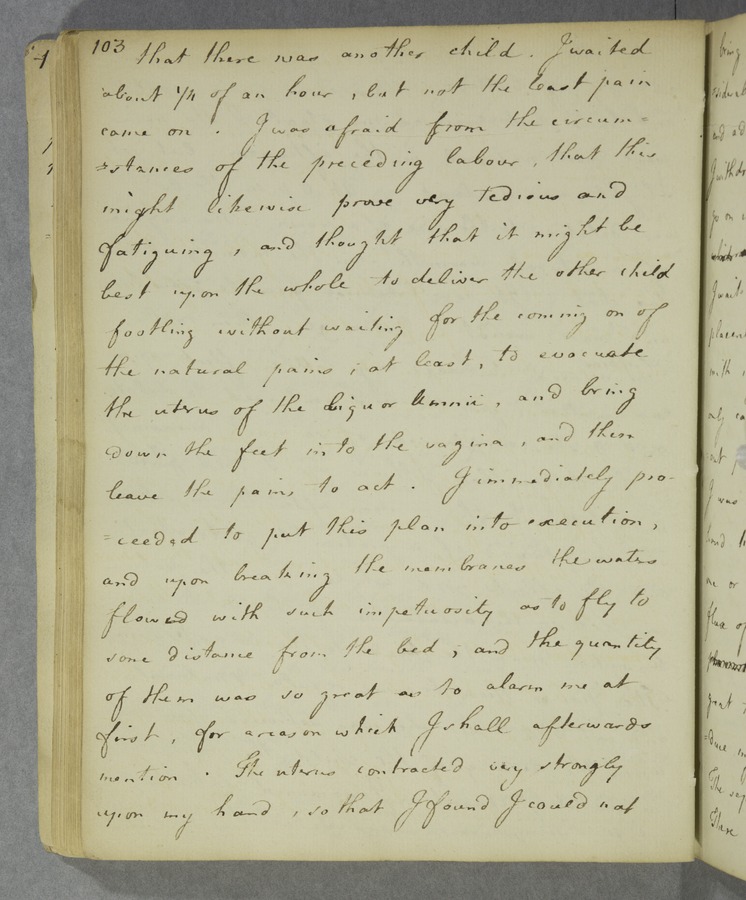 103 that there was another child. I waited
about 1/4 of an hour, but not the least pain
came on. I was afraid from the circum=
=stances of the preceding labour, that this
might likewise prove very tedious and
fatiguing, and thought that it might be
best upon the whole to deliver the other child
footling without waiting for the coming on of
the natural pains; at least, to evacuate
the uterus of the Liquor Amnii, and bring
down the feet into the vagina, and then
leave the pains to act. I immediately pro-
=ceeded to put this plan into execution,
and upon breaking the membranes the waters
flowed with such impetuosity as to fly to
some distance from the bed; and the quantity
of them was so great as to alarm me at
first, for a reason which I shall afterwards
mention. The uterus contracted very strongly
upon my hand, so that I found I could not